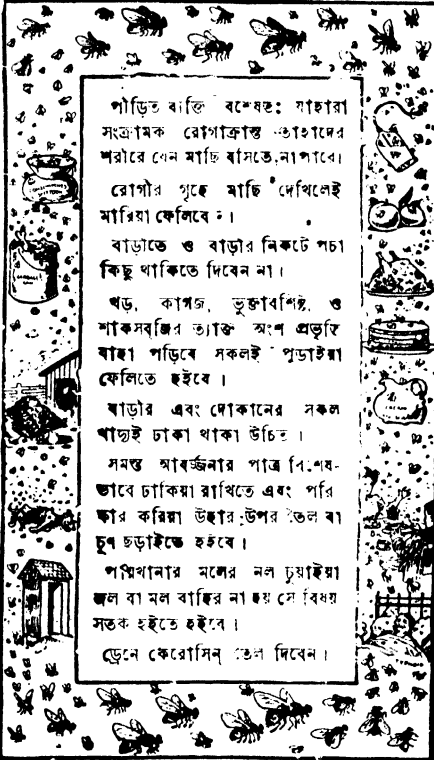 পীড়িত ব্যক্তি বশেষতঃ যাহারা
সংক্রামক রোগাক্রান্ত তাহাদের
শরীরে যেন মাছি বসিতে না পারে।
রোগীর গৃহে মাছি দেখিলেই
মারিয়া ফেলিবেন।
বাড়ীতে ও বাড়ীর নিকটে পচা
কিছু থাকিতে দিবেন না।
খড়, কাগজ, ভুক্তাবশিষ্ট, ও
শাকসব্জির ত্যাক্ত অংশ প্রভৃতি
যাহা পড়িবে সকলই পুড়াইয়া
ফেলিতে হইবে।
বাড়ীর এবং দোকানের সকল
খাদ্যই ঢাকা থাকা উচিত।
সমস্ত আবর্জ্জনার পাত্র বিশেষ-
ভাবে ঢাকিয়া রাখিতে এবং পরি
ষ্কার করিয়া উহার উপর তৈল বা
চূণ ছড়াইতে হইবে।
পায়খানার মলের নল চুয়াইয়া
জল বা মল বাহির না হয় সে বিষয়
সতর্ক হইতে হইবে।
ড্রেনে কেরোসিন তেল দিবেন।